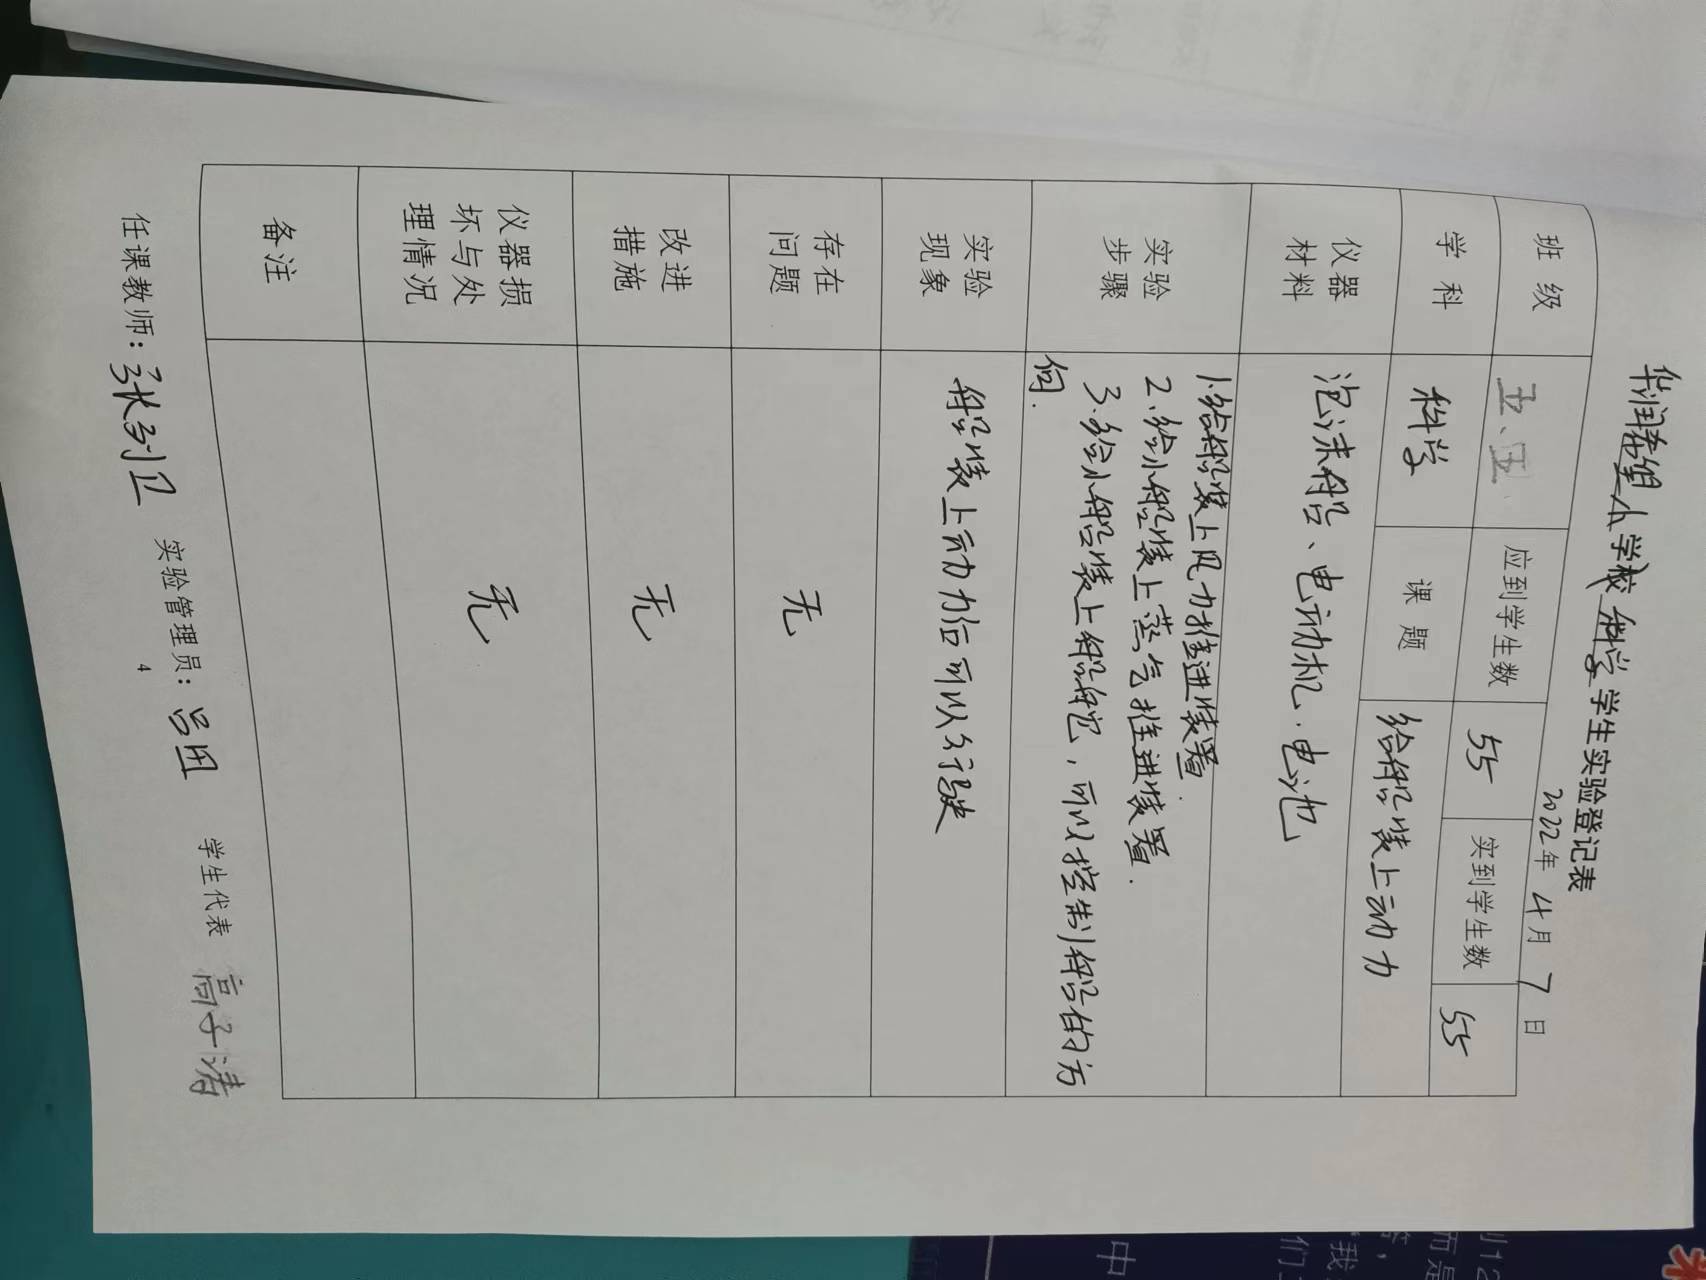 华润希望小学(校) 科学 学生实验登记表
2022年 4月 7 日
班 级 五、五 应到学生数 55 实到学生数 55
学 科 科学 课 题 给船装上动力
仪器材料 泡沫船、电动机、电池
实验步骤 1.给船装上风力推进装置.
2、给小船装上蒸气推进装置.
3.给小船装上船舵，可以控制船的方
向.
实验现象 船装上动力后可以行驶
存在问题 无
改进措施 无
仪器损坏与处理情况 无
备注
任课教师：张利卫 实验管理员：吕团 学生代表 高子涛
4
中